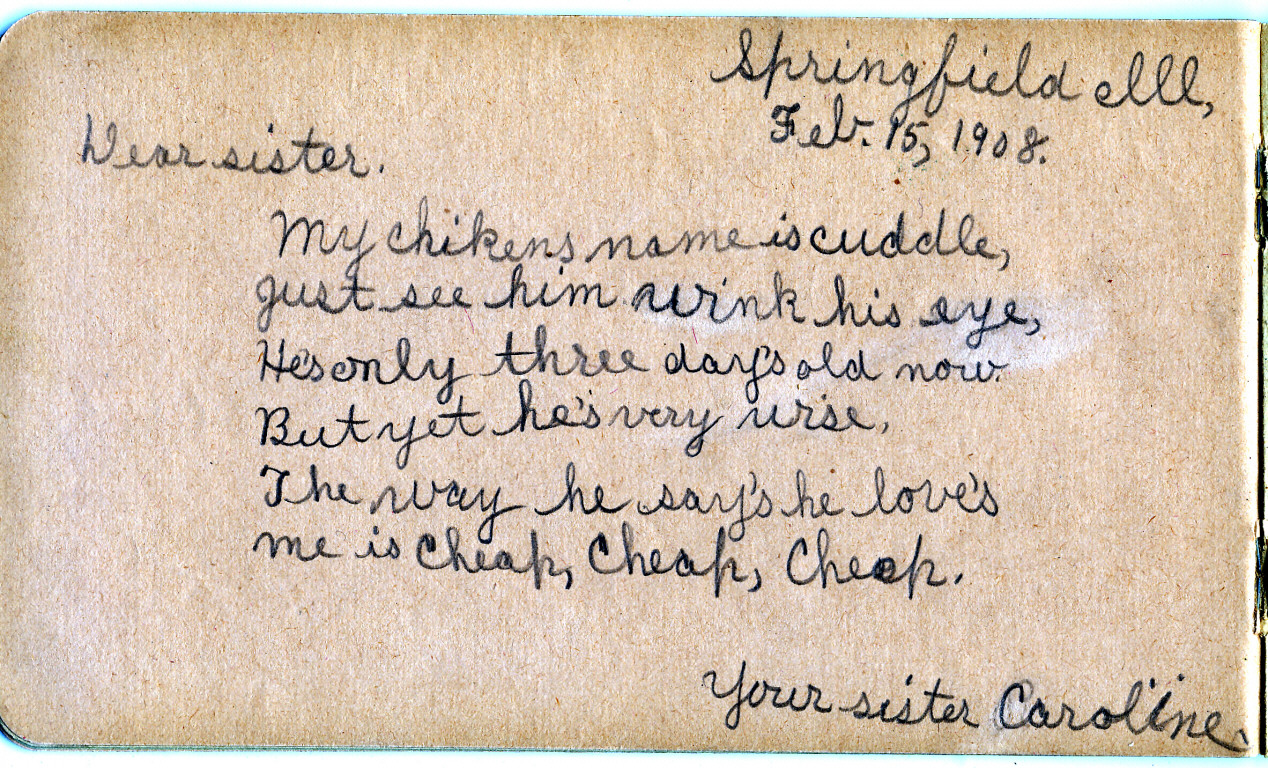 Springfield Ill,
Feb. 15, 1908.
Dear sister.
My chikens name is cuddle,
just see him wink his eye,
He's only three day's old now.
But yet he's very wise.
The way he say's he love's
me is Cheap, Cheap, Cheep.
Your sister Caroline.